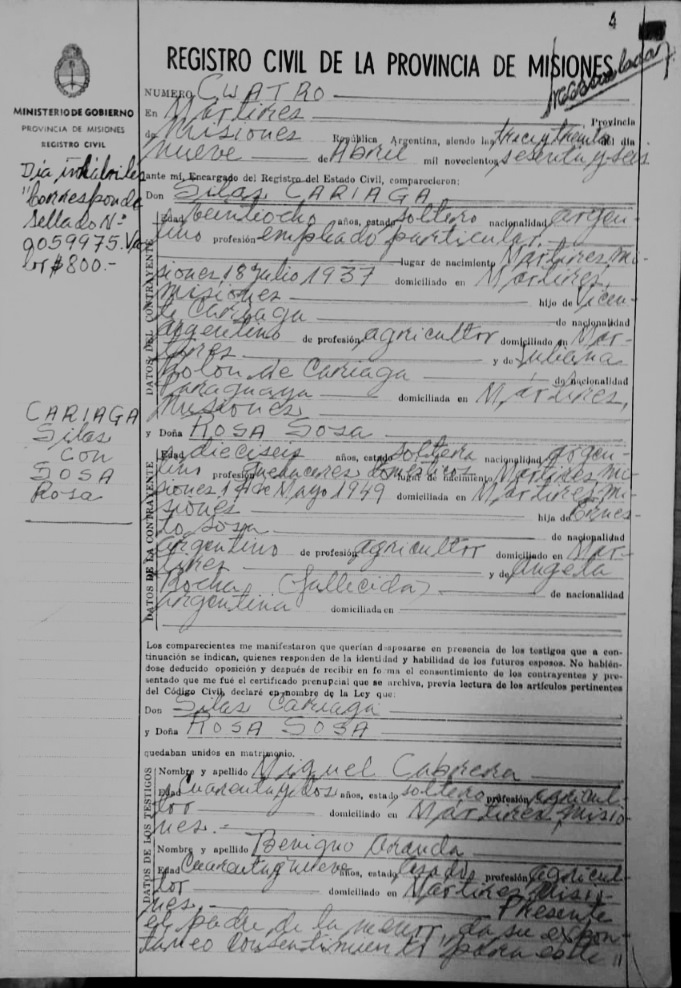 4
REGISTRO CIVIL DE LA PROVINCIA DE MISIONES
MINISTERIO DE GOBIERNO
PROVINCIA DE MISIONES
REGISTRO CIVIL
Día inhábiles
"Corresponde
Sellado Nº
9059975. Va
lor $ 800.-
CARIAGA
Silas
Con
SOSA
Rosa
NUMERO CUATRO
En Mártires Provincia
de Misiones República Argentina, siendo las trece y treinta del día
nueve de Abril mil novecientos sesenta y seis
ante mí, Encargado del Registro del Estado Civil, comparecieron:
Don Silas CARIAGA
DATOS DEL CONTRAYENTE
Edad veintiocho años, estado soltero nacionalidad argen-
tino profesión empleado particular.
lugar de nacimiento Mártires, Mi-
siones 18 Julio 1937 domiciliado en Mártires,
Misiones hijo de Vicen-
te Cariaga de nacionalidad
argentino de profesión agricultor domiciliado en Már-
tires y de Juliana
de Cariaga de nacionalidad
Paraguaya domiciliada en Mártires,
Misiones
y Doña ROSA SOSA
DATOS DE LA CONTRAYENTE
Edad dieciseis años, estado soltera nacionalidad argen-
tino profesión quehaceres domésticos lugar de nacimiento Mártires, Mi-
siones 14 de Mayo 1949 domiciliada en Mártires, Mi-
siones hija de Ernes-
to Sosa de nacionalidad
argentino de profesión agricultor domiciliado en Már-
tires y de Angela
Rocha (fallecida) de nacionalidad
argentina domiciliada en
Los comparecientes me manifestaron que querían desposarse en presencia de los testigos que a con-
tinuación se indican, quienes responden de la identidad y habilidad de los futuros esposos. No habién-
dose deducido oposición y después de recibir en forma el consentimiento de los contrayentes y pre-
sentado que me fué el certificado prenupcial que se archiva, previa lectura de los artículos pertinentes
del Código Civil, declaré en nombre de la Ley que:
Don Silas Cariaga
y Doña ROSA SOSA
quedaban unidos en matrimonio.
DATOS DE LOS TESTIGOS
Nombre y apellido Miguel Cabrera
Edad Cuarenta y dos años, estado soltero profesión agricul-
tor domiciliado en Mártires, Misio-
nes.-
Nombre y apellido Benigno Aranda
Edad Cuarenta y nueve años, estado casado profesión agricul-
tor domiciliado en Mártires, Misio-
nes.- Presente
el padre de la menor da su expon-
taneo consentimiento "para este"